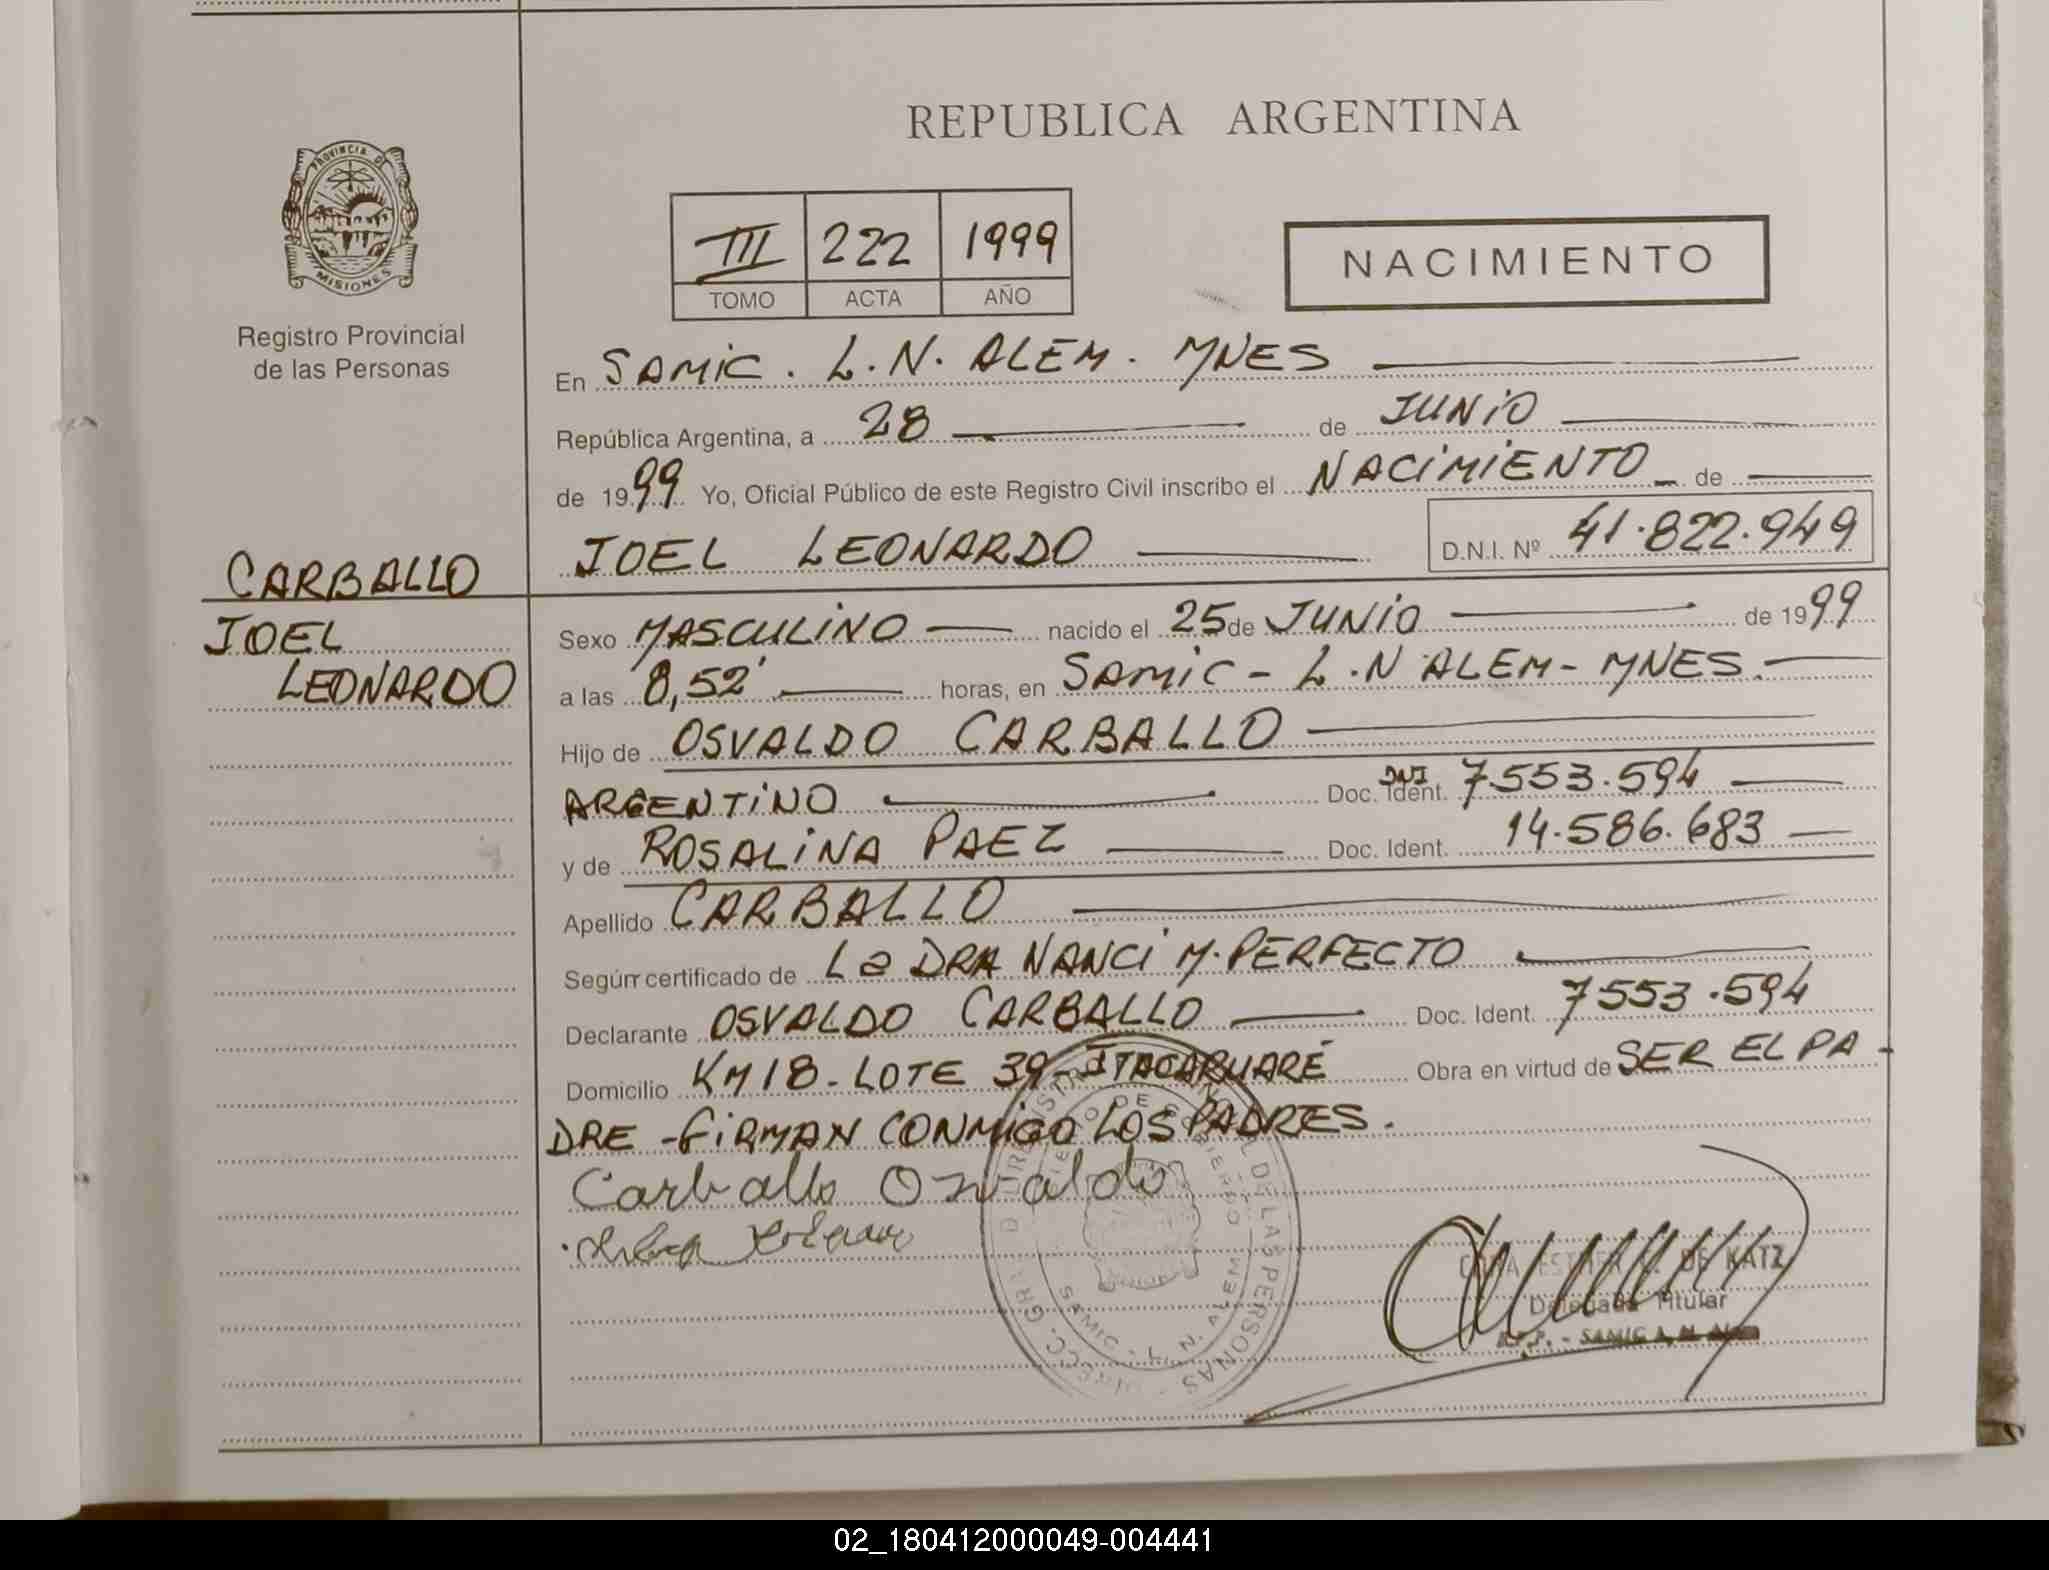 REPUBLICA ARGENTINA
PROVINCIA DE
MISIONES
Registro Provincial
de las Personas
III 222 1999
TOMO ACTA AÑO
NACIMIENTO
En SAMIC. L.N. ALEM. MNES
República Argentina, a 28 de JUNIO
de 1999 Yo, Oficial Público de este Registro Civil inscribo el NACIMIENTO de
JOEL LEONARDO D.N.I. Nº 41.822.949
CARBALLO
JOEL
LEONARDO
Sexo MASCULINO nacido el 25 de JUNIO de 1999
a las 8,52' horas, en SAMIC - L.N ALEM - MNES.
Hijo de OSVALDO CARBALLO
ARGENTINO Doc. Ident. DNI 7553.594
y de ROSALINA PAEZ Doc. Ident. 14.586.683
Apellido CARBALLO
Según certificado de La DRA NANCI M. PERFECTO
Declarante OSVALDO CARBALLO Doc. Ident. 7553.594
Domicilio KM18 - LOTE 39 - ITACARUARÉ Obra en virtud de SER EL PA-
DRE - FIRMAN CONMIGO LOS PADRES.
Carballo Osvaldo
DE LAS PERSONAS
DE GOBIERNO
SAMIC - L. N. ALEM
DE KATZ
Delegada Titular
SAMIC
02_180412000049-004441